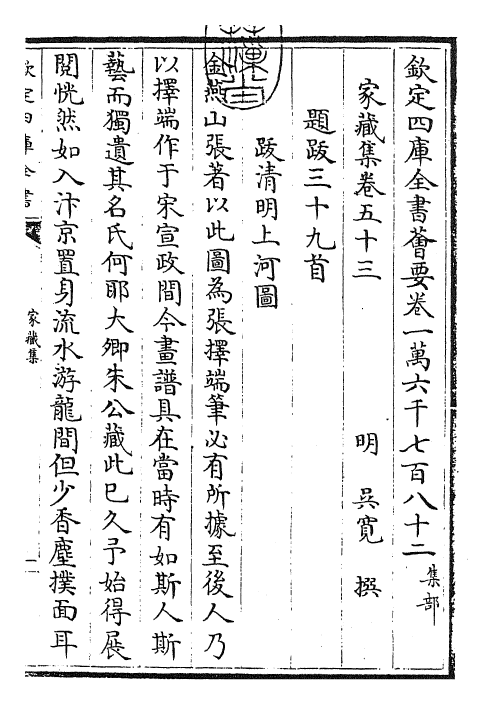 欽定四庫全書薈要卷一萬六千七百八十二 集部
家藏集卷五十三
明 吳寬 撰
題跋三十九首
跋清明上河圖
金燕山張著以此圖為張擇端筆必有所據至後人乃
以擇端作于宋宣政間今畫譜具在當時有如斯人斯
藝而獨遺其名氏何耶大卿朱公藏此已久予始得展
閱恍然如入汴京置身流水游龍間但少香塵撲面耳
欽定四庫全書
家藏集
一